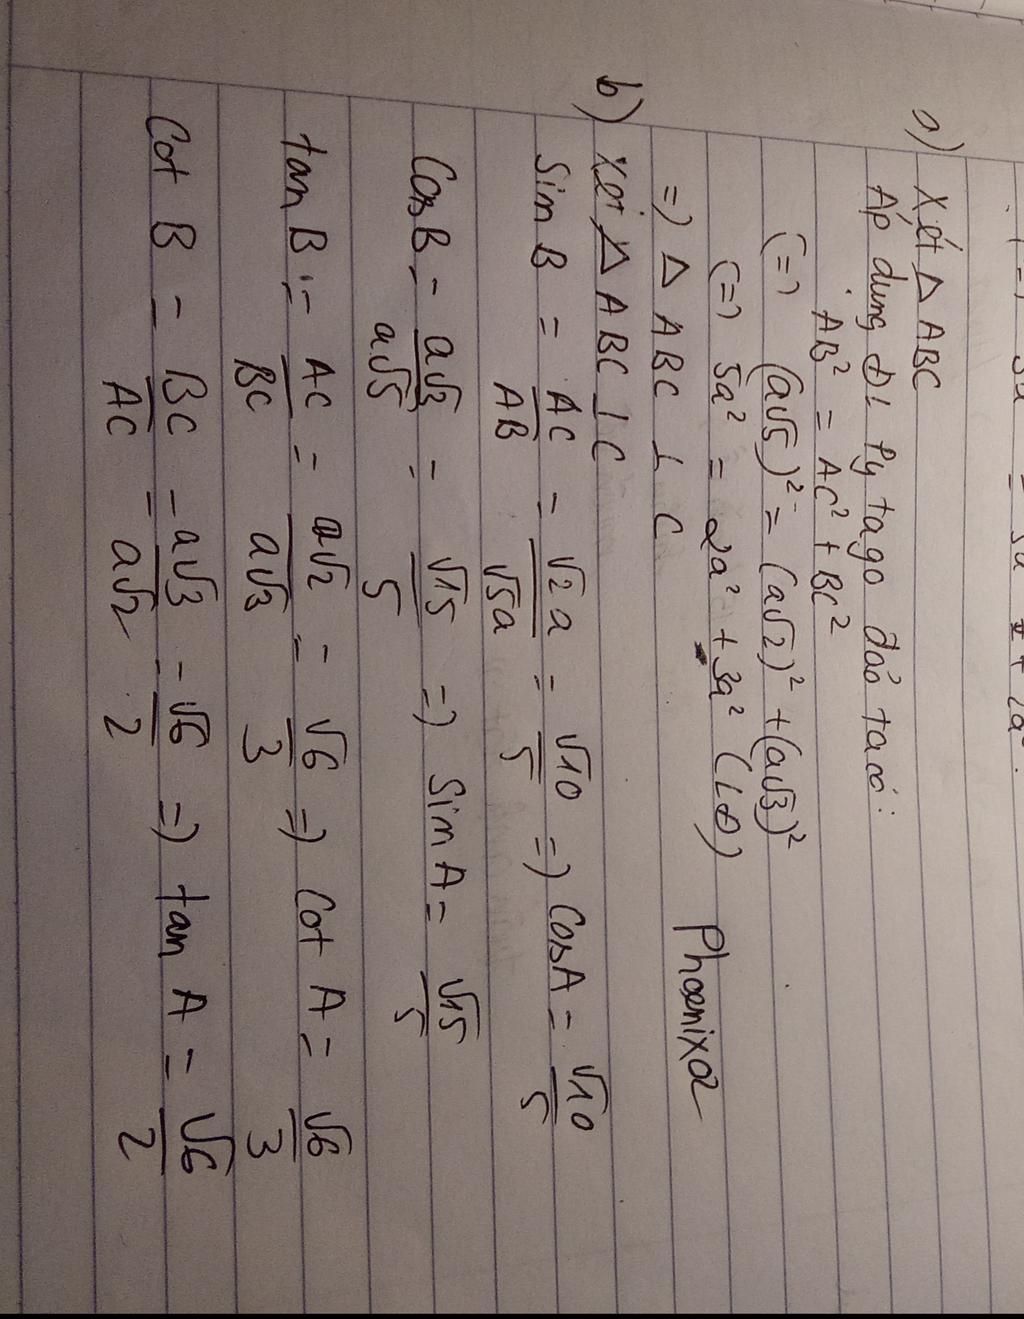 a) Xét △ ABC
Áp dụng Đl Py tago đảo ta có:
AB² = AC² + BC²
(=) (a√5)² = (a√2)² + (a√3)²
(=) 5a² = 2a² + 3a² (LĐ)
=) △ ABC ⊥ C
Phoenixa
b) Xét △ ABC ⊥ C
Sin B = AC/AB = √2a/√5a = √10/5 =) Cos A = √10/5
Cos B = a√3/a√5 = √15/5 =) Sin A = √15/5
tan B = AC/BC = a√2/a√3 = √6/3 =) Cot A = √6/3
Cot B = BC/AC = a√3/a√2 = √6/2 =) tan A = √6/2